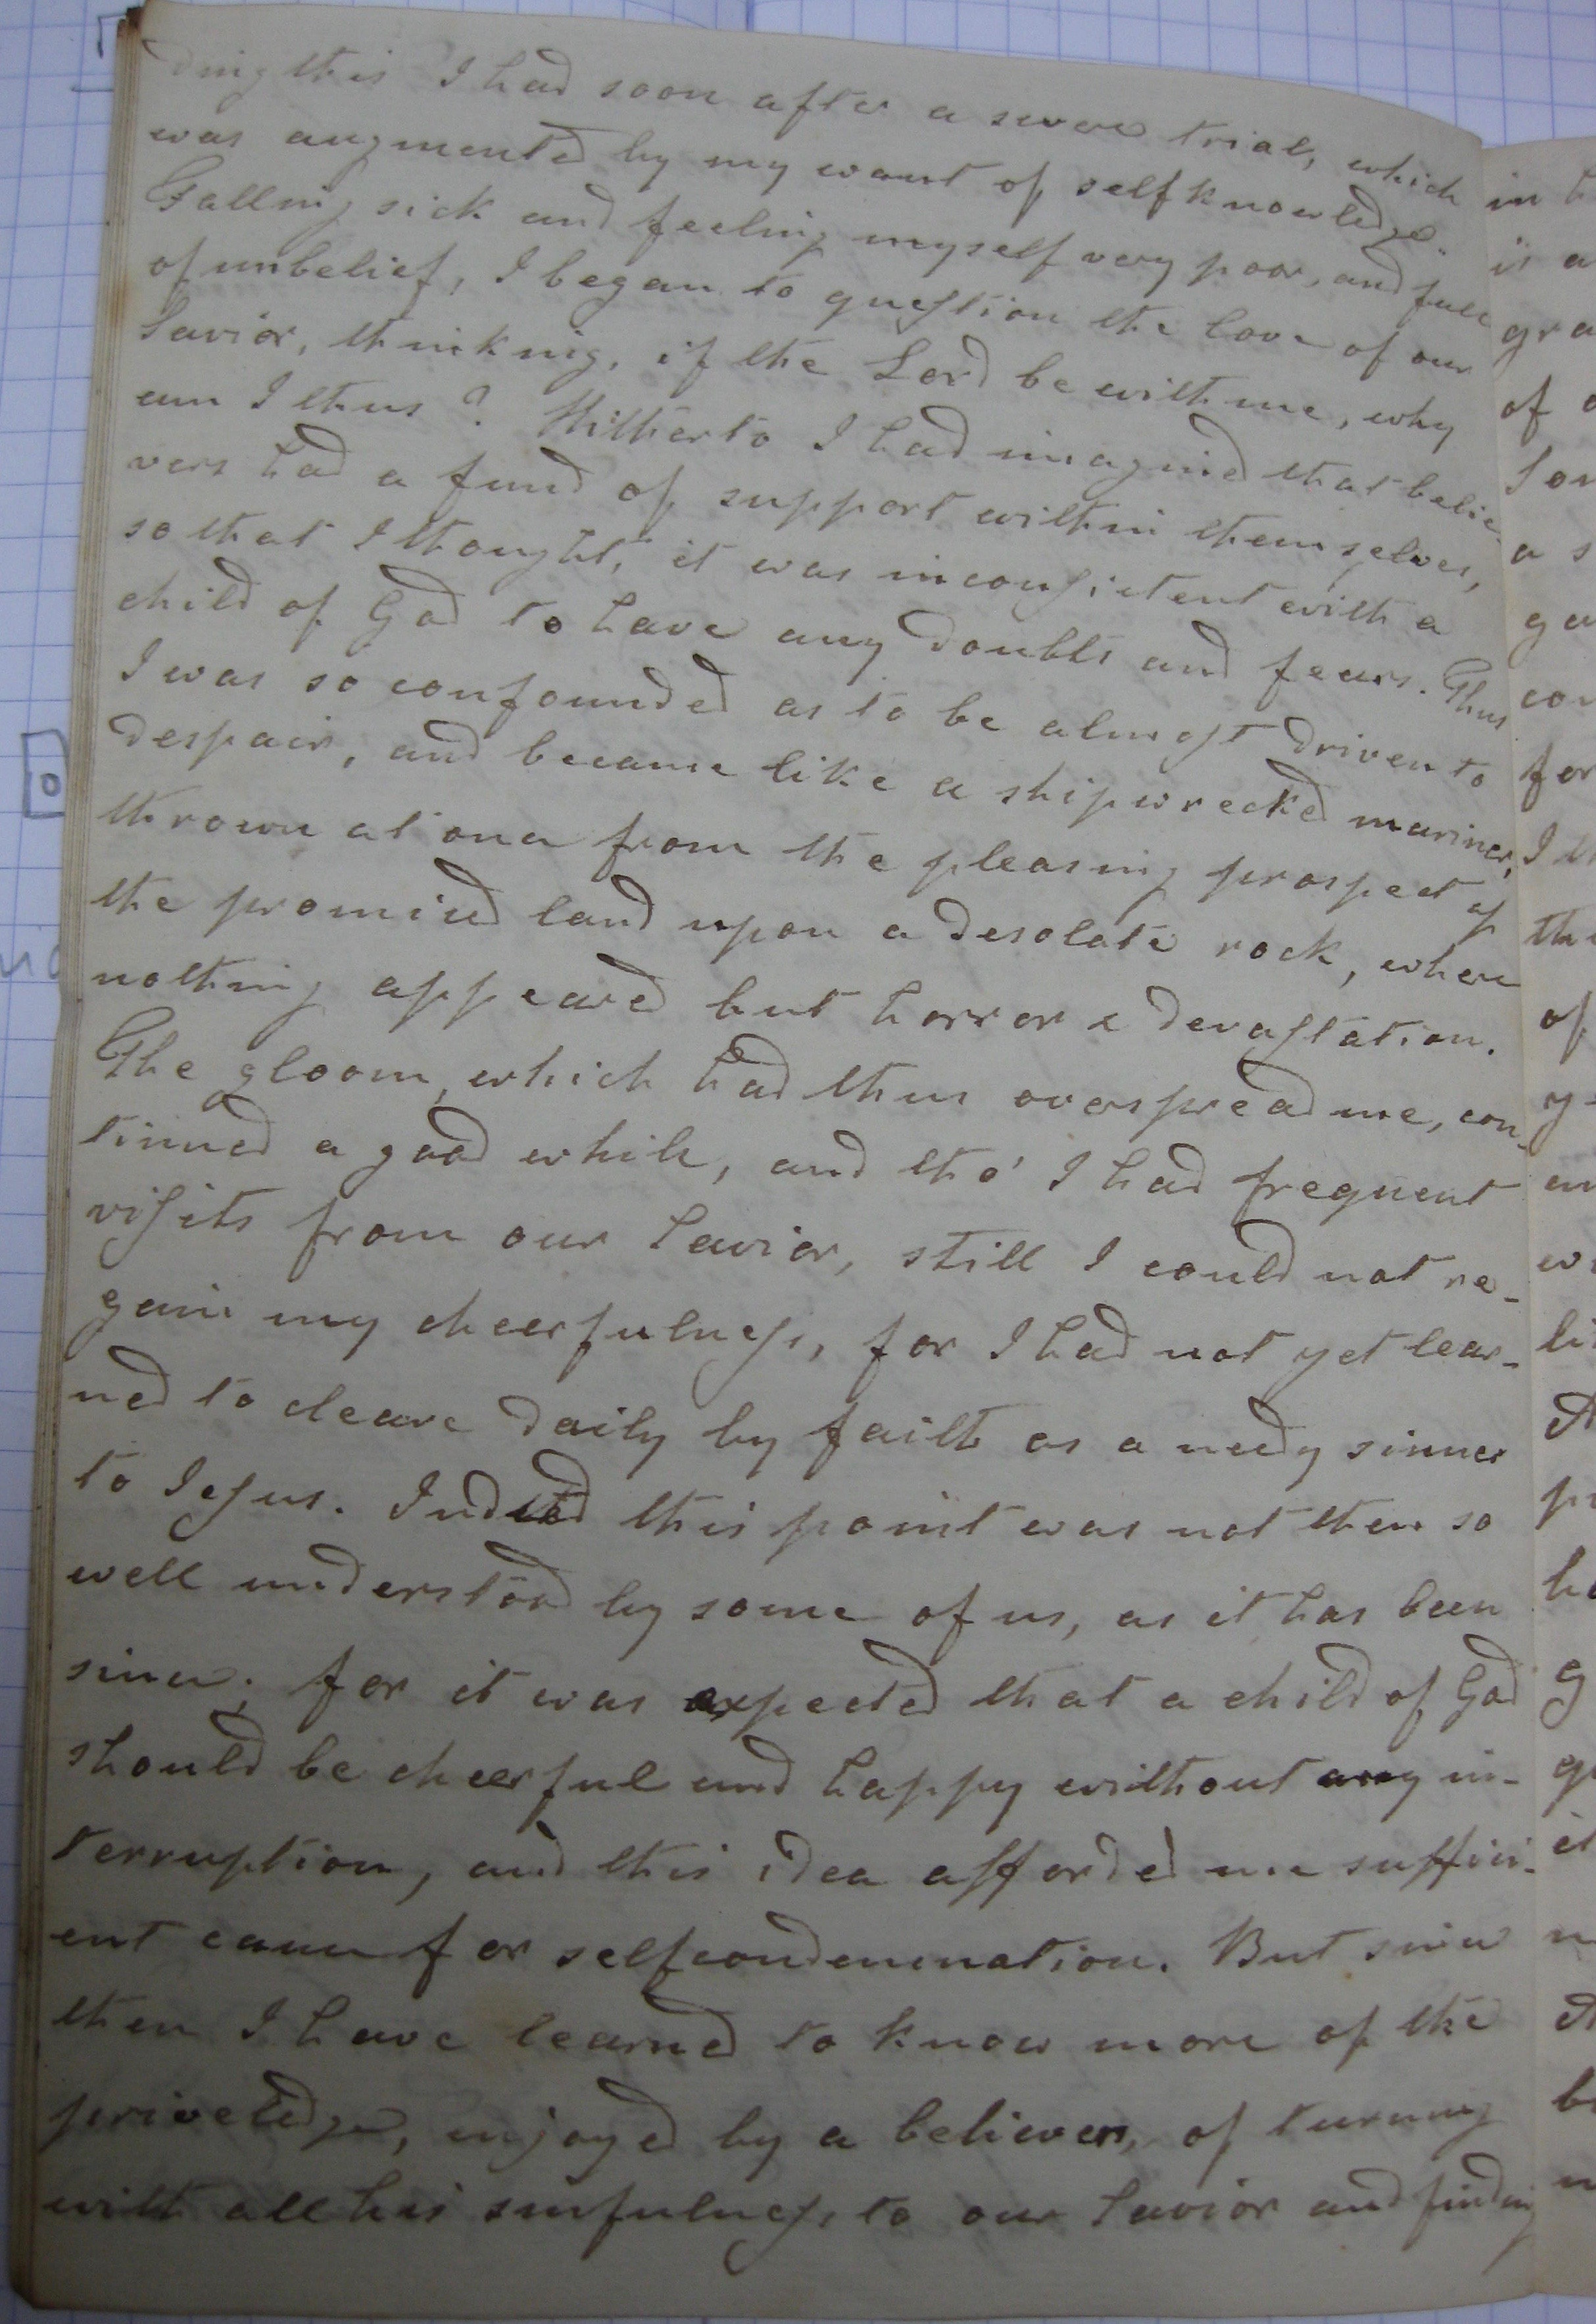 ding this I had soon after a severe trial, which
was augmented by my want of selfknowledge.
Falling sick and feeling myself very poor, and full
of unbelief, I began to question the love of our
Savior, thinking, if the Lord be with me, why
am I thus? Hitherto I had imagined that belie-
vers had a fund of support within themselves,
so that I thought, it was inconsistent with a
child of God to have any doubts and fears. Thus
I was so confounded as to be almost driven to
despair, and became like a shipwrecked mariner,
thrown at once from the pleasing prospect of
the promised land upon a desolate rock, where
nothing appeared but horror & devastation.
The gloom, which had thus overspread me, con-
tinued a good while, and tho' I had frequent
visits from our Savior, still I could not re-
gain my cheerfulness, for I had not yet lear-
ned to cleave daily by faith as a needy sinner
to Jesus. Indeed this point was not then so
well understood by some of us, as it has been
since; for it was expected that a child of God
should be cheerful and happy without any in-
terruption, and this idea afforded me suffici-
ent cause for selfcondemnation. But since
then I have learned to know more of the
priveledge, enjoyed by a believer, of turning
with all his sinfulness to our Savior and finding
in
is a
gra
of
a s
for
the
of